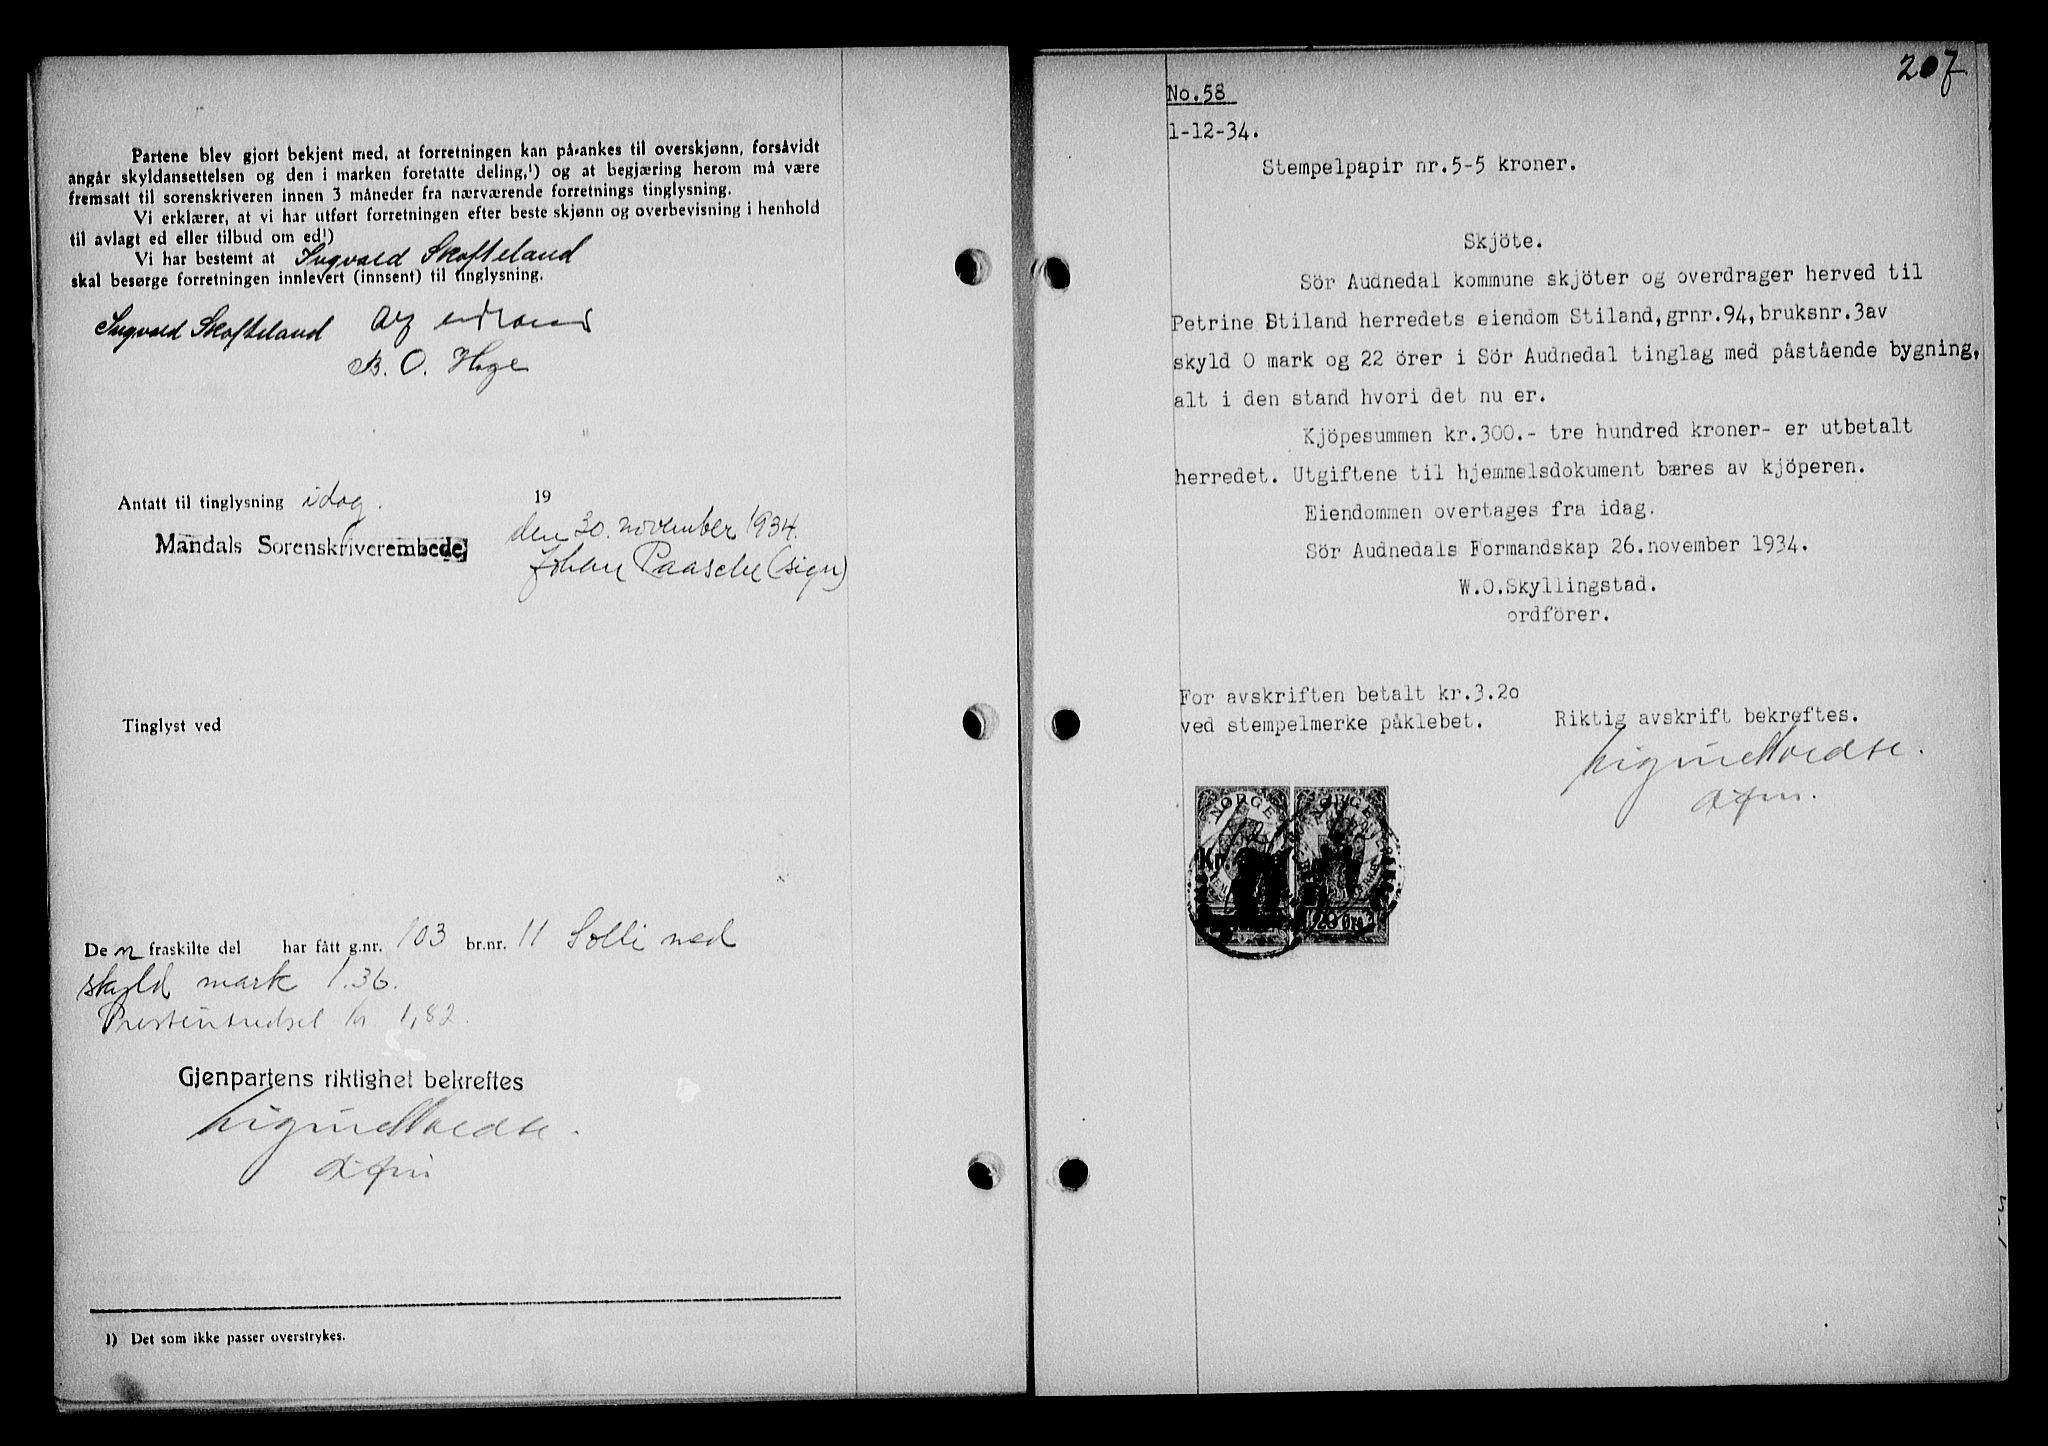 Partene blev gjort bekjent med, at forretningen kan på-ankes til overskjønn, forsåvidt
angår skyldansettelsen og den i marken foretatte deling,¹) og at begjæring herom må være
fremsatt til sorenskriveren innen 3 måneder fra nærværende forretnings tinglysning.
Vi erklærer, at vi har utført forretningen efter beste skjønn og overbevisning i henhold
til avlagt ed eller tilbud om ed¹)
Vi har bestemt at Ingvald Skofteland
skal besørge forretningen innlevert (innsent) til tinglysning.
Ingvald Skofteland
B. O. Hage
Antatt til tinglysning idag. 19
Mandals Sorenskriverembede, den 30. november 1934.
Johan Paasche (sign)
Tinglyst ved
De n fraskilte del har fått g.nr. 103 br.nr. 11 Solli med
skyld mark 1.36.
kr 1,82.
Gjenpartens riktighet bekreftes
1) Det som ikke passer overstrykes.
207
No.58
1-12-34.
Stempelpapir nr.5-5 kroner.
Skjöte.
Sör Audnedal kommune skjöter og overdrager herved til
Petrine Stiland herredets eiendom Stiland, grnr.94, bruksnr.3av
skyld 0 mark og 22 örer i Sör Audnedal tinglag med påstående bygning,
alt i den stand hvori det nu er.
Kjöpesummen kr.300.- tre hundred kroner- er utbetalt
herredet. Utgiftene til hjemmelsdokument bæres av kjöperen.
Eiendommen overtages fra idag.
Sör Audnedals Formandskap 26.november 1934.
W.O.Skyllingstad.
ordförer.
For avskriften betalt kr.3.20
ved stempelmerke påklebet.
Riktig avskrift bekreftes.
NORGE NORGE
Kr.
20 ØRE